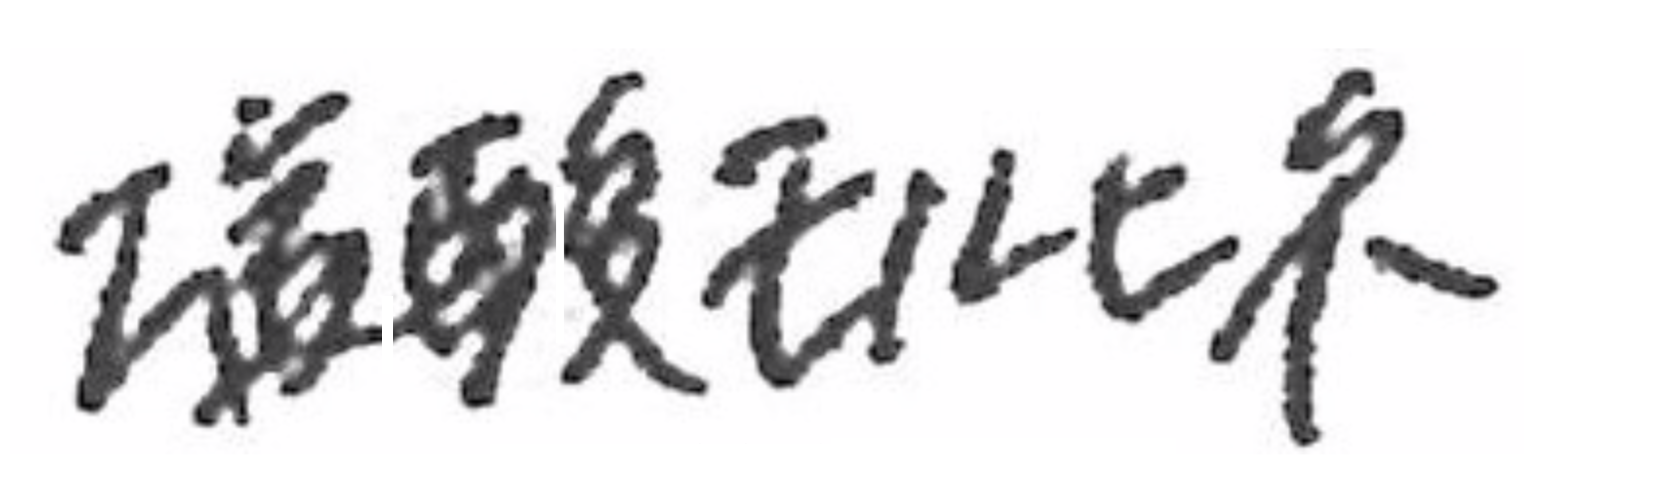 塩酸モルヒネ